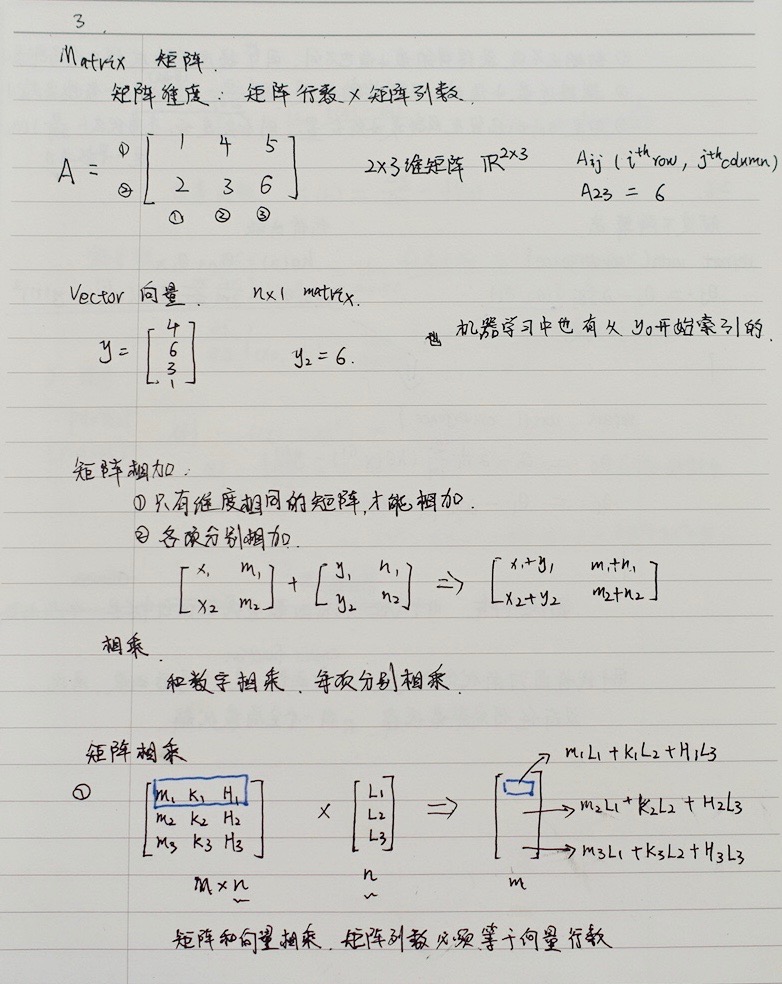 3.
Matrix 矩阵.
矩阵维度: 矩阵行数 × 矩阵列数.
A = ① ② [ 1 4 5 2 3 6 ] ① ② ③ 2×3维矩阵 ℝ^{2×3} Aij (i^{th} row, j^{th} column)
A23 = 6
Vector 向量. n×1 matrix.
y = [ 4 6 3 1 ] y₂ = 6. 机器学习中也有从 y₀开始索引的.
矩阵相加:
① 只有维度相同的矩阵,才能相加.
② 各项分别相加.
[ x₁ m₁ x₂ m₂ ] + [ y₁ n₁ y₂ n₂ ] => [ x₁+y₁ m₁+n₁ x₂+y₂ m₂+n₂ ]
相乘.
和数字相乘. 每项分别相乘.
矩阵相乘
① [ m₁ K₁ H₁ m₂ K₂ H₂ m₃ K₃ H₃ ] × [ L₁ L₂ L₃ ] => [ ] → m₁L₁+K₁L₂+H₁L₃
→ m₂L₁+K₂L₂+H₂L₃
→ m₃L₁+K₃L₂+H₃L₃
m × n n m
矩阵和向量相乘. 矩阵列数必须等于向量行数